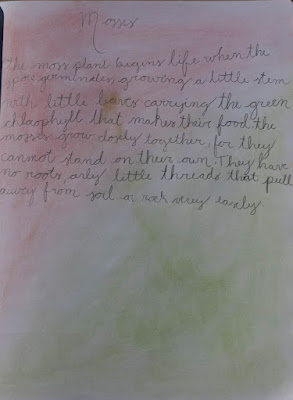 Mosses
The moss plant begins life when the
spore germinates growing a little stem
with little leaves carrying the green
chlorophyll that makes their food. The
mosses grow closely together, for they
cannot stand on their own. They have
no roots, only little threads that pull
away from soil or rock very easily.